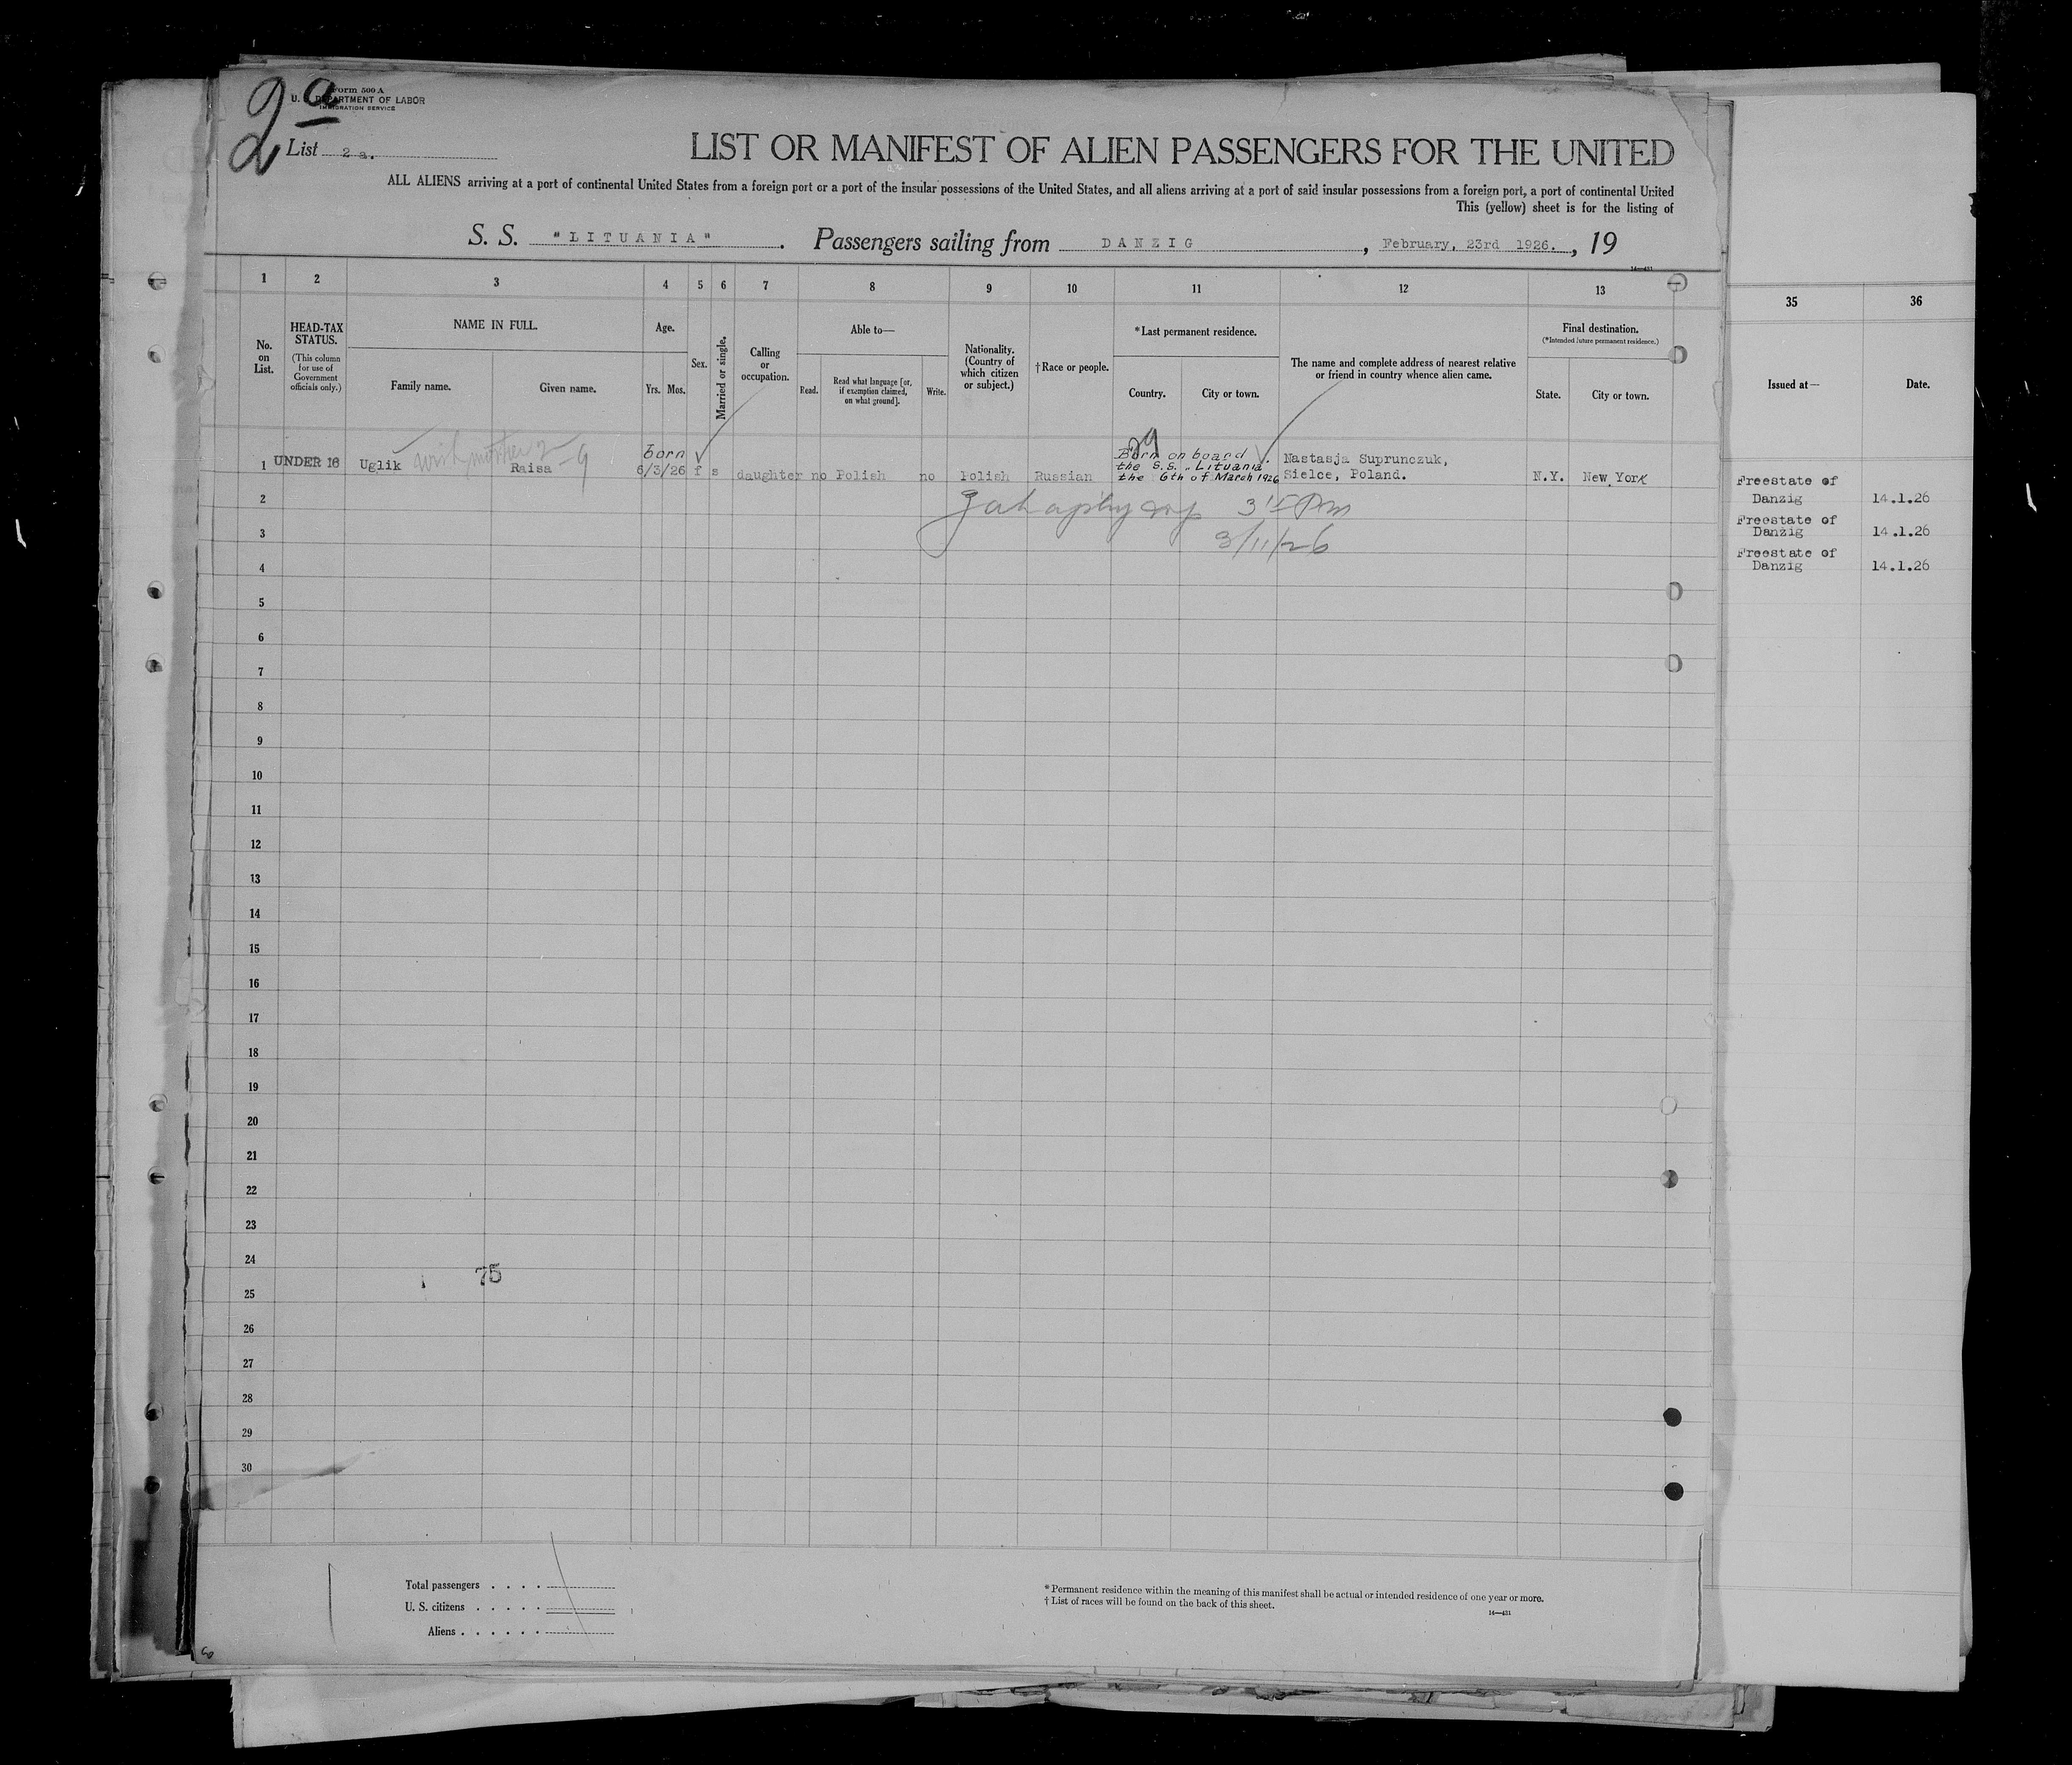 2 a
Form 500 A
U. S. DEPARTMENT OF LABOR
IMMIGRATION SERVICE
List 2 a.
LIST OR MANIFEST OF ALIEN PASSENGERS FOR THE UNITED
ALL ALIENS arriving at a port of continental United States from a foreign port or a port of the insular possessions of the United States, and all aliens arriving at a port of said insular possessions from a foreign port, a port of continental United
This (yellow) sheet is for the listing of
S. S. "LITUANIA". Passengers sailing from DANZIG, February, 23rd 1926., 19
14—431
1 2 3 4 5 6 7 8 9 10 11 12 13
35 36
No. on List.
HEAD-TAX STATUS.
(This column for use of Government officials only.)
NAME IN FULL.
Family name. Given name.
Age.
Yrs. Mos.
Sex.
Married or single.
Calling or occupation.
Able to—
Read. Read what language [or, if exemption claimed, on what ground]. Write.
Nationality. (Country of which citizen or subject.)
†Race or people.
*Last permanent residence.
Country. City or town.
The name and complete address of nearest relative or friend in country whence alien came.
Final destination.
(*Intended future permanent residence.)
State. City or town.
Issued at— Date.
1 UNDER 16 Uglik with mother 2-9 Raisa born 6/3/26 f s daughter no Polish no Polish Russian
Born on board
the S.S. "Lituania"
the 6th of March 1926
Nastasja Suprunczuk,
Sielce, Poland.
N.Y. New York
3 15 PM
3/11/26
Freestate of
Danzig 14.1.26
Freestate of
Danzig 14.1.26
Freestate of
Danzig 14.1.26
2
3
4
5
6
7
8
9
10
11
12
13
14
15
16
17
18
19
20
21
22
23
24
75
25
26
27
28
29
30
Total passengers
U. S. citizens
Aliens
* Permanent residence within the meaning of this manifest shall be actual or intended residence of one year or more.
† List of races will be found on the back of this sheet.
14—431